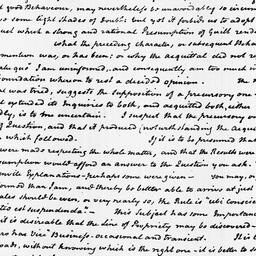 good Behaviour, may nevertheless be unavoidably so circum
so some light shades of Doubt: but yet it forbids us to adopt
uct which a strong and rational Presumption of Guilt rende
what the preceding character, or subsequent Behav
momentum was, or has been; or why the acquittal did not re
I am uninformed, and consequently am too much in
foundation whereon to rest a decided opinion. the
al was tried, suggests the supposition of a precursory one
extended its Enquiries to both, and acquitted both, either
dly, is to me uncertain. I suspect that the precursory on
of Question, and that it produced (notwithstanding the Acquit
which followed. If it is to be presumed that
were made respecting the whole matter, and that the Result wou
sumption would afford an answer to the Question you ask.
Explanations perhaps some were given — You may, or
formed than I am, and thereby be better able to arrive at just
ales should be even, or very nearly so, the Rule is "ubi Conscie
tio est suspendenda" — this Subject has some Importance
it is desireable that the Line of Propriety may be discovered —
Business occasional and transient. It is
oads, without knowing which is the right one — it is better to s